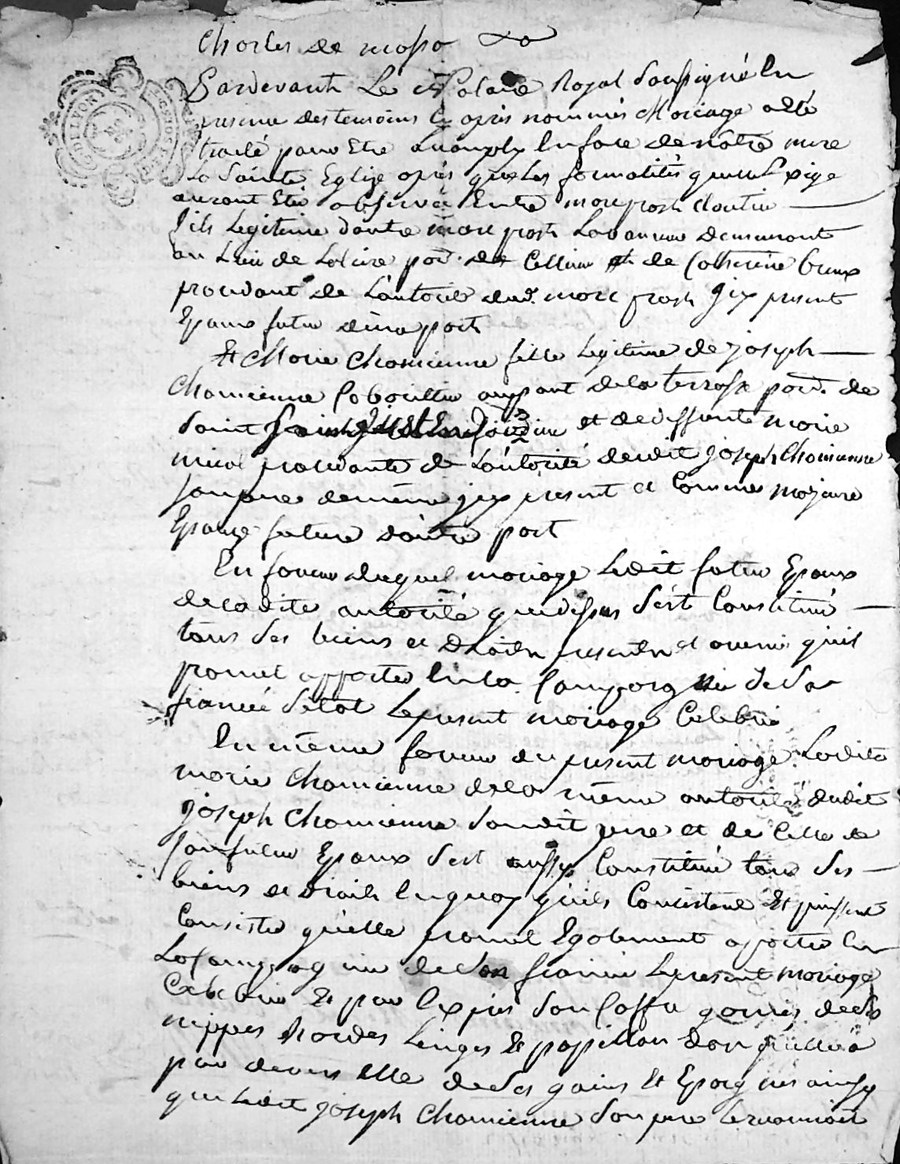 Charles de masso
Pardevant Le Notaire Royal Soussigné En
presence des temoins Cy apres nommés Mariage a eté
traité pour Etre accomply En face de nôtre mere
La Sainte Eglize apres que les formalités quelle Exige
auront Eté observée Entre
fils Legitime dautre demeurant
au Lieu de parr. de Cellieu et de Catherine
procedant de L'autorité dud. icy present
Epoux futur d'une part
Et Marie Chomienne fille Legitime de joseph
Chomienne Laboureur de la terrasse parr. de
Saint et de deffunte marie
procedante de L'autorité dudit joseph Chomienne
son pere de même icy present et Comme majeure
Epouze future d'autre part
En faveur duquel mariage Ledit futur Epoux
de ladite autorité que dessus S'est Constitué
tous Ses biens et Droits presents et avenir quil
promet apporter En la Compagnie de Sa
fiancée Sitot Le present mariage Celebré
En même faveur du present mariage Ladite
marie Chomienne de la même autorité dudit
joseph Chomienne Sondit pere et de Celle de
Son futur Epoux S'est aussy Constitué tous Ses
biens et Droits En quoy qu'ils Consistent Et puissent
Consister qu'elle promet Egalement apporter En
La Compagnie de Son fiancé Le present mariage
Celebré Et par Exprès Son Coffre garnis de Ses
nippes hardes Linges Et papillon
par devers Elle de Ses gains Et Epargnes ainsy
que Ledit joseph Chomienne Son pere